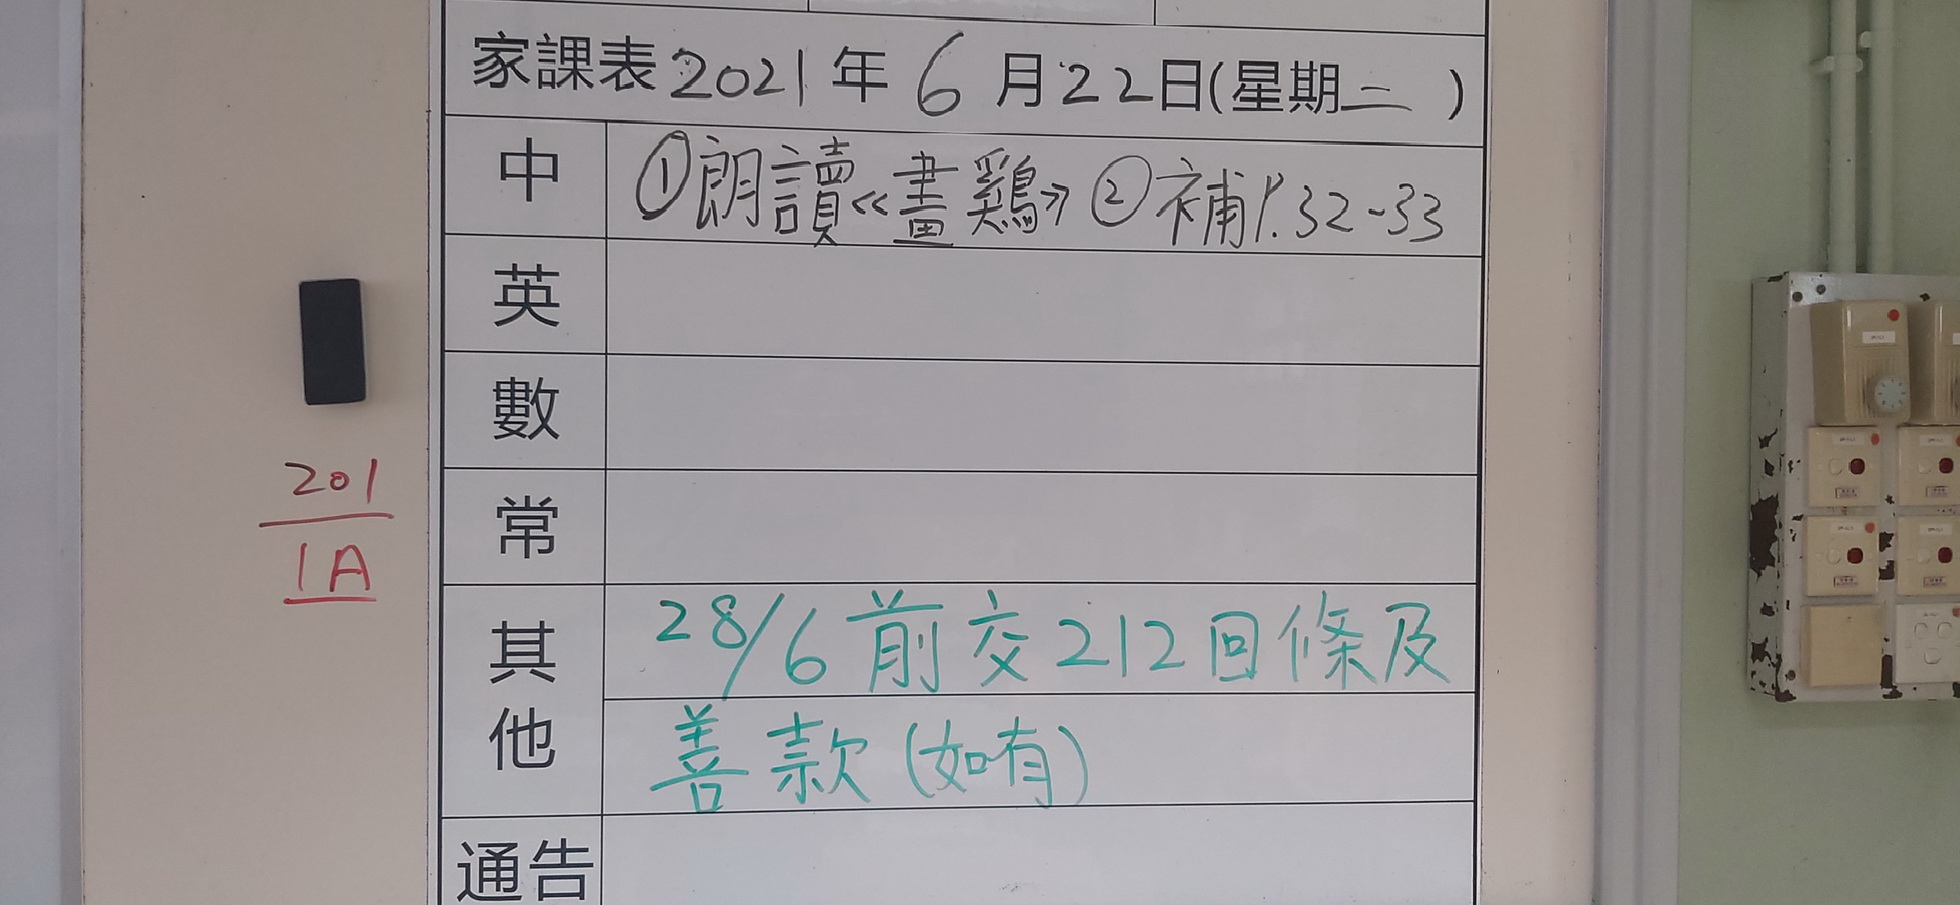 家課表2021年6月22日(星期二)
中 ①朗讀《畫鷄》②補P.32-33
英
數
常
其他 28/6前交212回條及
善款(如有)
通告
201
1A